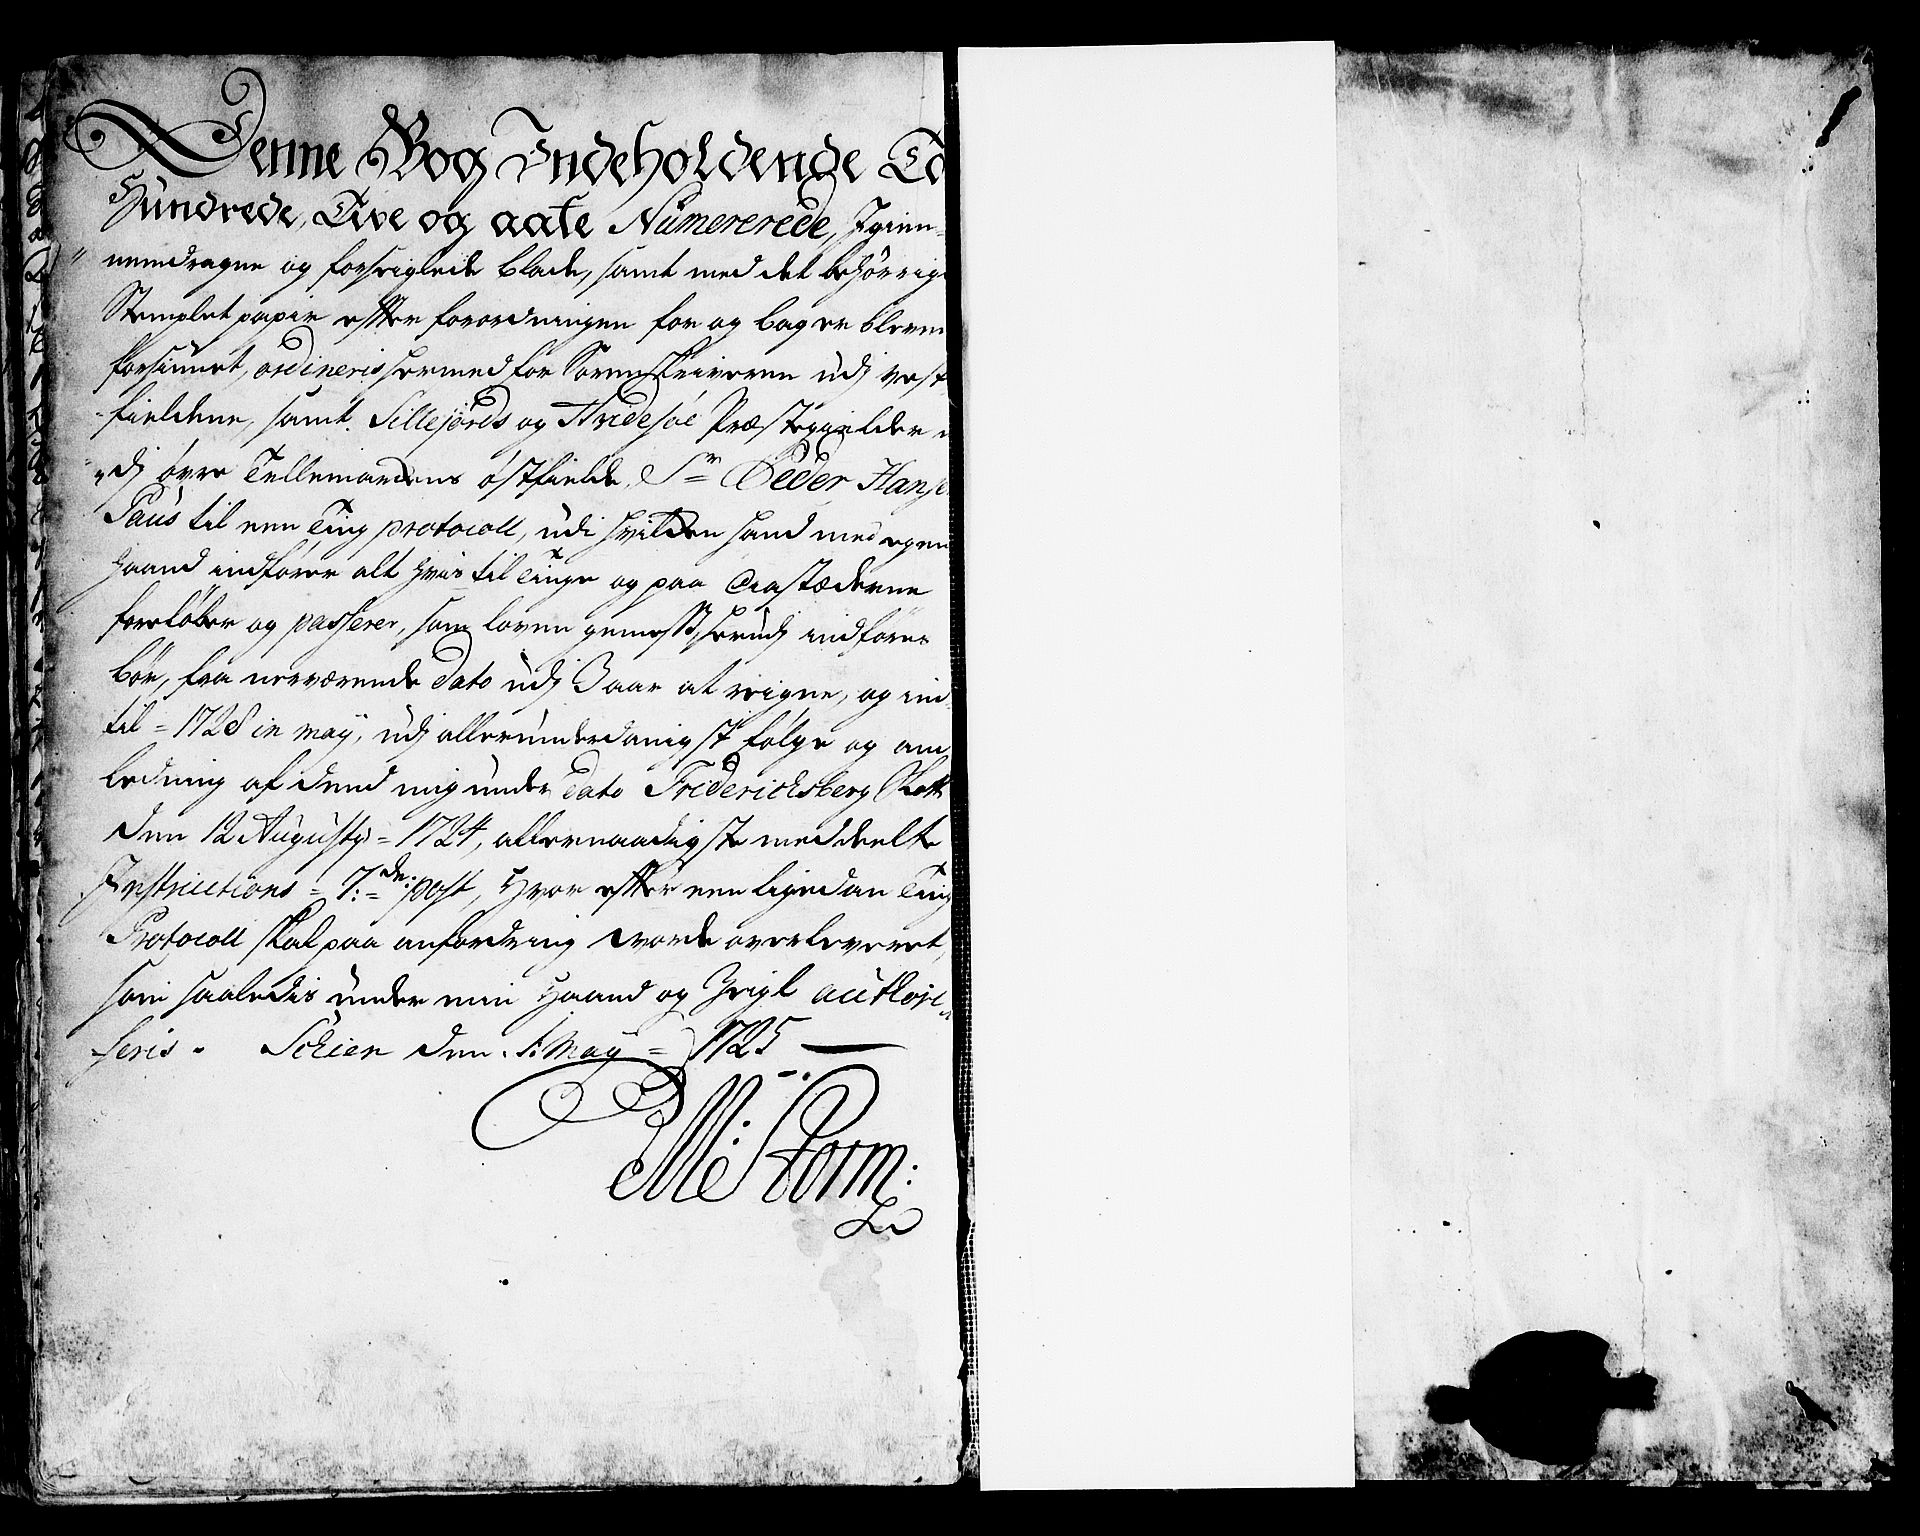 Denne Bog Indeholdende To
Hundrede, Tive og aate Numererede, Igien-
nemdragne og forseiglede blade, samt med det behørrige
Stemplet papir effter forordningen for og bag er bleven
forsiunet, ordineris hermed for Sorenskriveren udj vest
fieldene, samt Sillejords og Hvidesøe Præstegielder u
dj øvre Tellemarckens østfielde, Sr Peder Hanse
Paus til een Ting protocoll, udi hvilcken hand med egen
haand indfører alt hvis til Tinge og paa Aastæderne
foreløber og passerer, som loven gemess, herudj indføres
bør, fra nerværende dato udj 3 aar at reigne, og ind
til = 1728 in maÿ, udj allerunderdanigst følge og an
ledning af dend mig under dato Fridericksberg Slott
den 12 Augustj = 1724, allernaadigste meddeelte
Instructions = 7:de post, hvor effter een ligedan Ting
Protocoll skal paa anfordring vorde overleveret,
som saaledis under min Haand og Zeigl authori-
seris. Schien den 1: Maÿ = 1725
M: Storm: